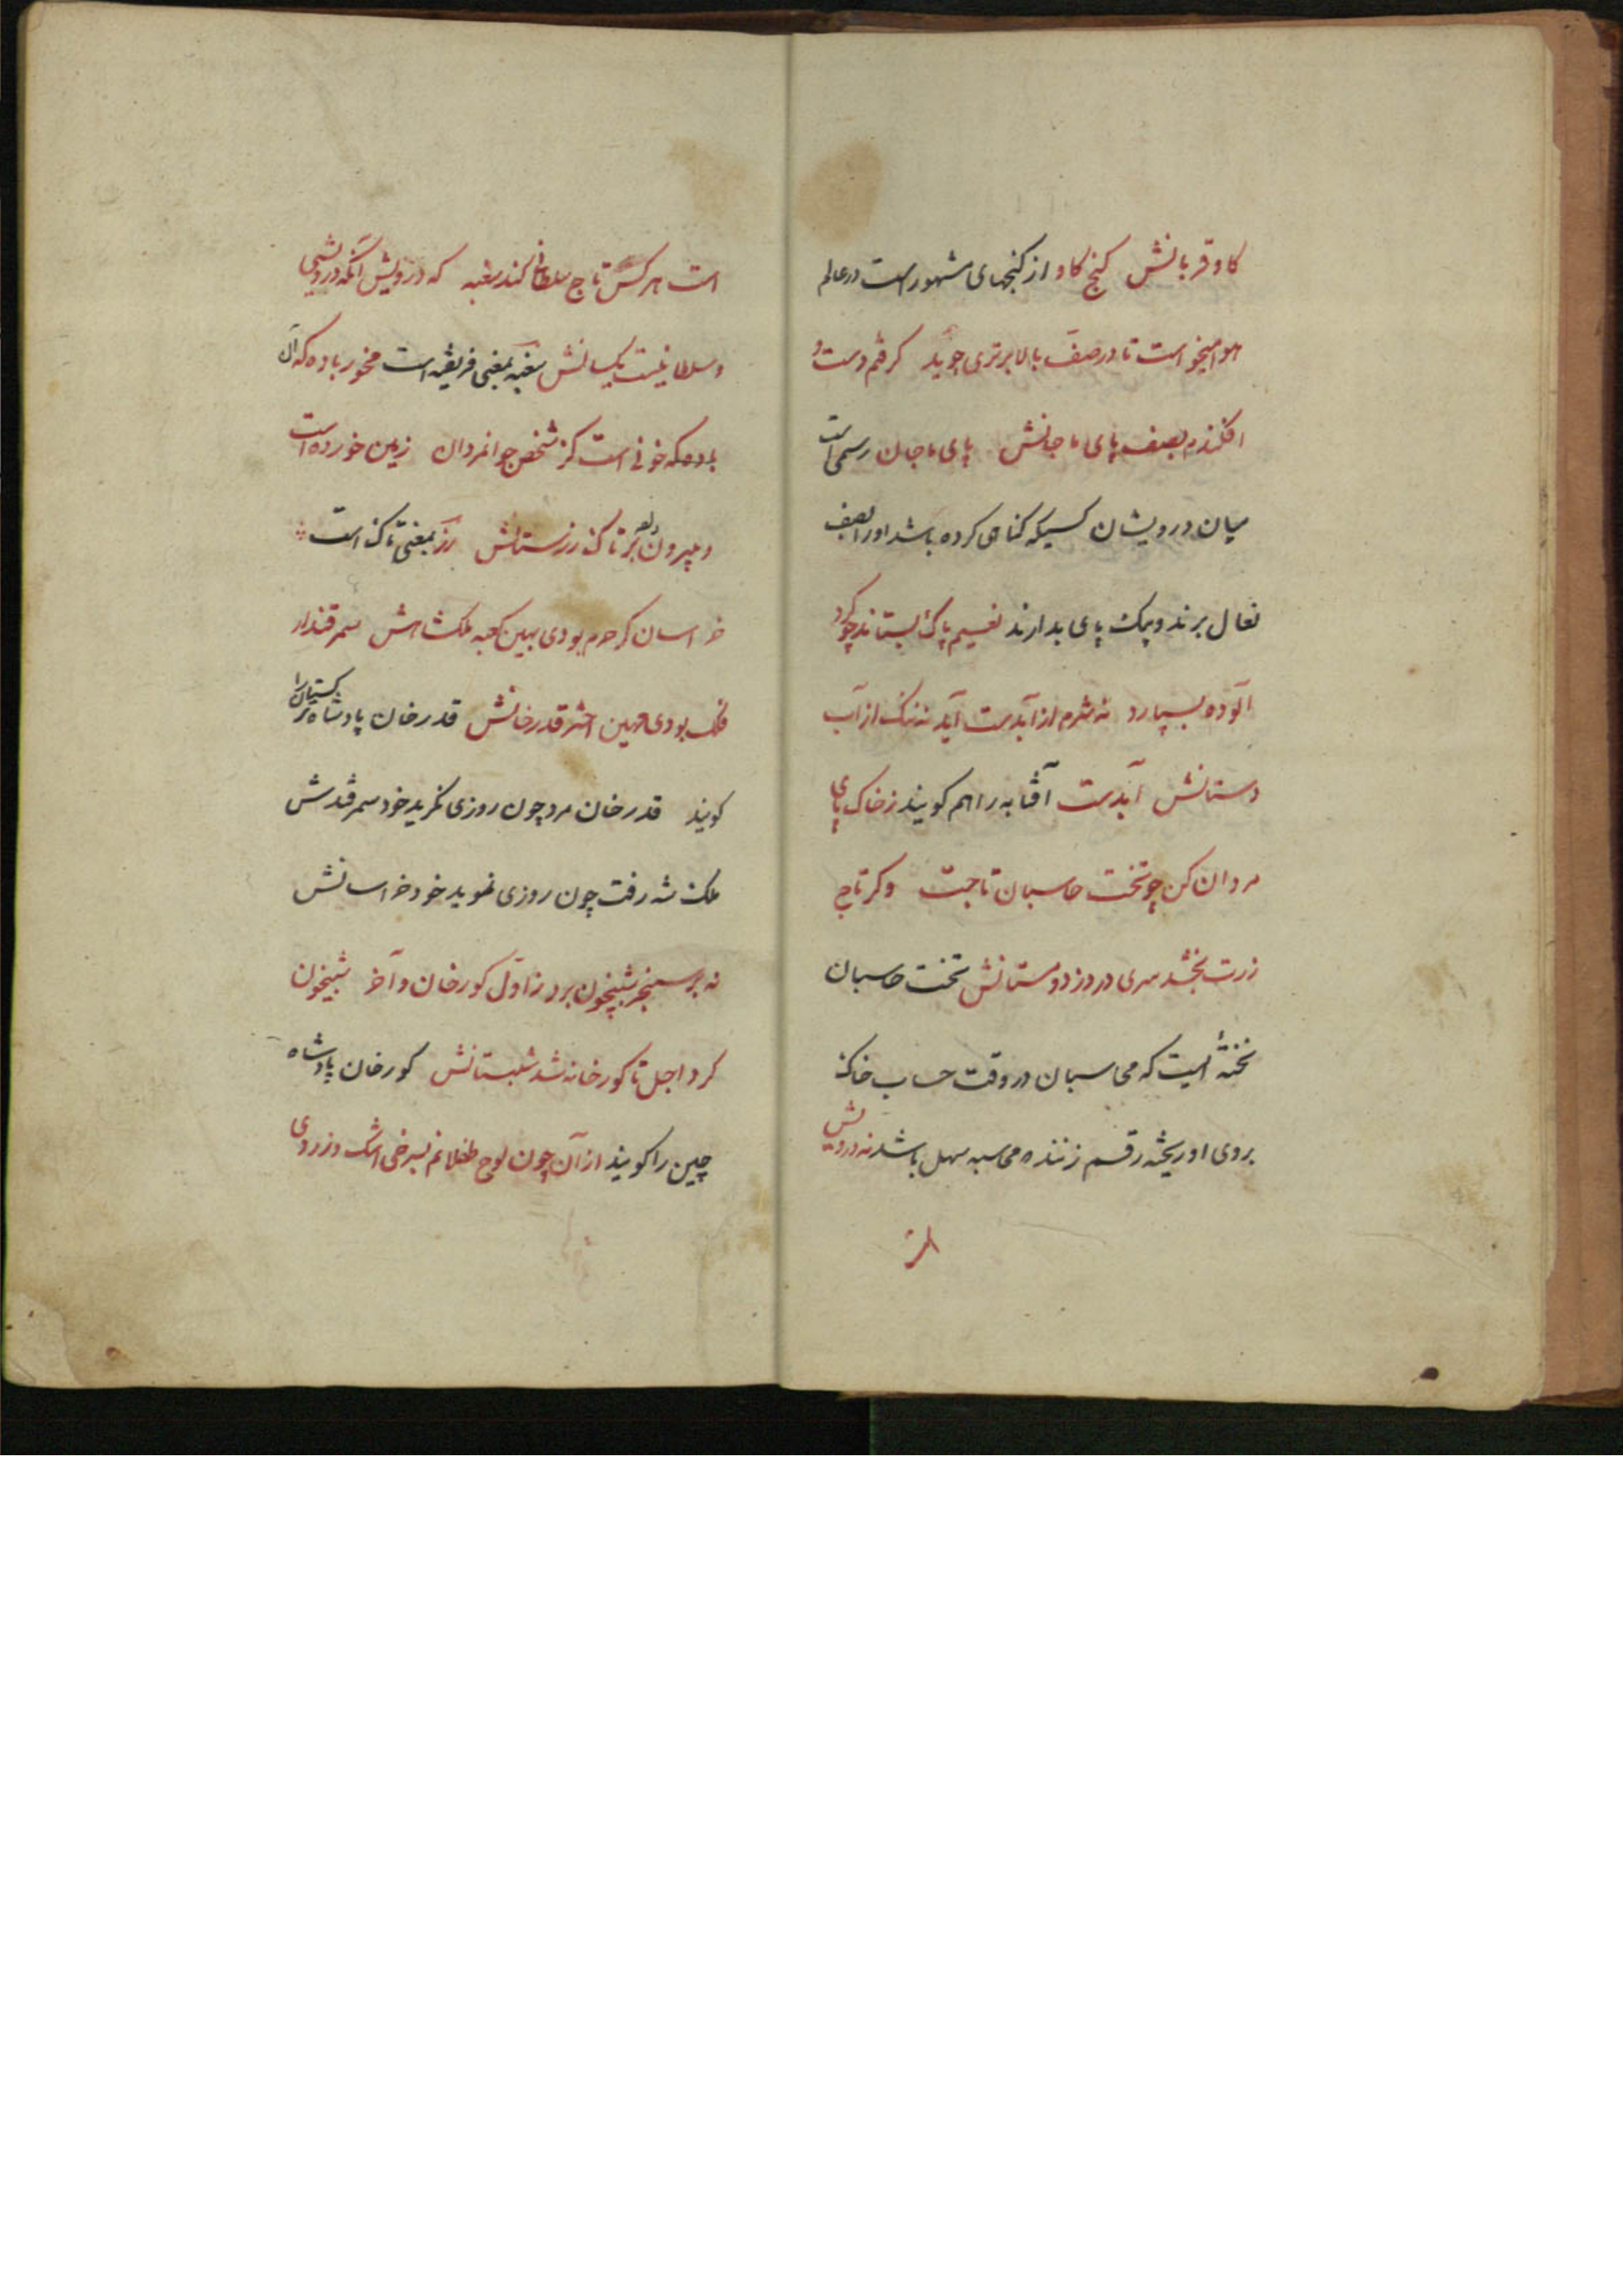 کاو قربانش کنج کاو از کنجهای مشهور است در عالم
هوا میخواست تا در صف بالا برتری جوید کرفتم دست و
افکندم بصف پای ماجانش پای ماجان رسمی است
میان درویشان کسیکه کناهی کرده باشد او را بصف
نعال برند و بیک پای بدارند نفسیم پاک بستاند چو کرد
آلوده بسپارد نه شرم از آبدست آید نه ننک از آب
دستانش آبدست آفتابه را هم کویند ز خاک پای
مردان کن چو تخت حاسبان تاجت وکر تاج
زرت بخشد سری در دزد و مستانش تخت حاسبان
تختهٔ ایست که محاسبان در وقت حساب خاک
بروی او ریخته رقم زنند ه محاسبه سهل باشد نه درویش
است
است هرکس تاج سلطانی کند سغبه که درویش آنکه درویشی
و سلطانیست یکسانش سغبه بمعنی فریفته است مخور باده که آن
باده که خونی است کز شخص جوانمردان زمین خورده است
و بیرون داد بر تاک رزستانش رز بمعنی تاک است
خراسان کر حرم بودی بهین کعبه ملکشاهش سمرقند ار
فلک بودی مهین اختر قدرخانش قدرخان پادشاه ترکستان را
کویند قدرخان مرد چون روزی نکرید خود سمرقندش
ملک شه رفت چون روزی نموید خود خراسانش
نه بر سنجر شبیخون برد ز اول کورخان و آخر شبیخون
کرد اجل تا کورخانه شد شبستانش کورخان پادشاه
چین را کویند از آن چون لوح طفلانم بسرخی اشک و زردی